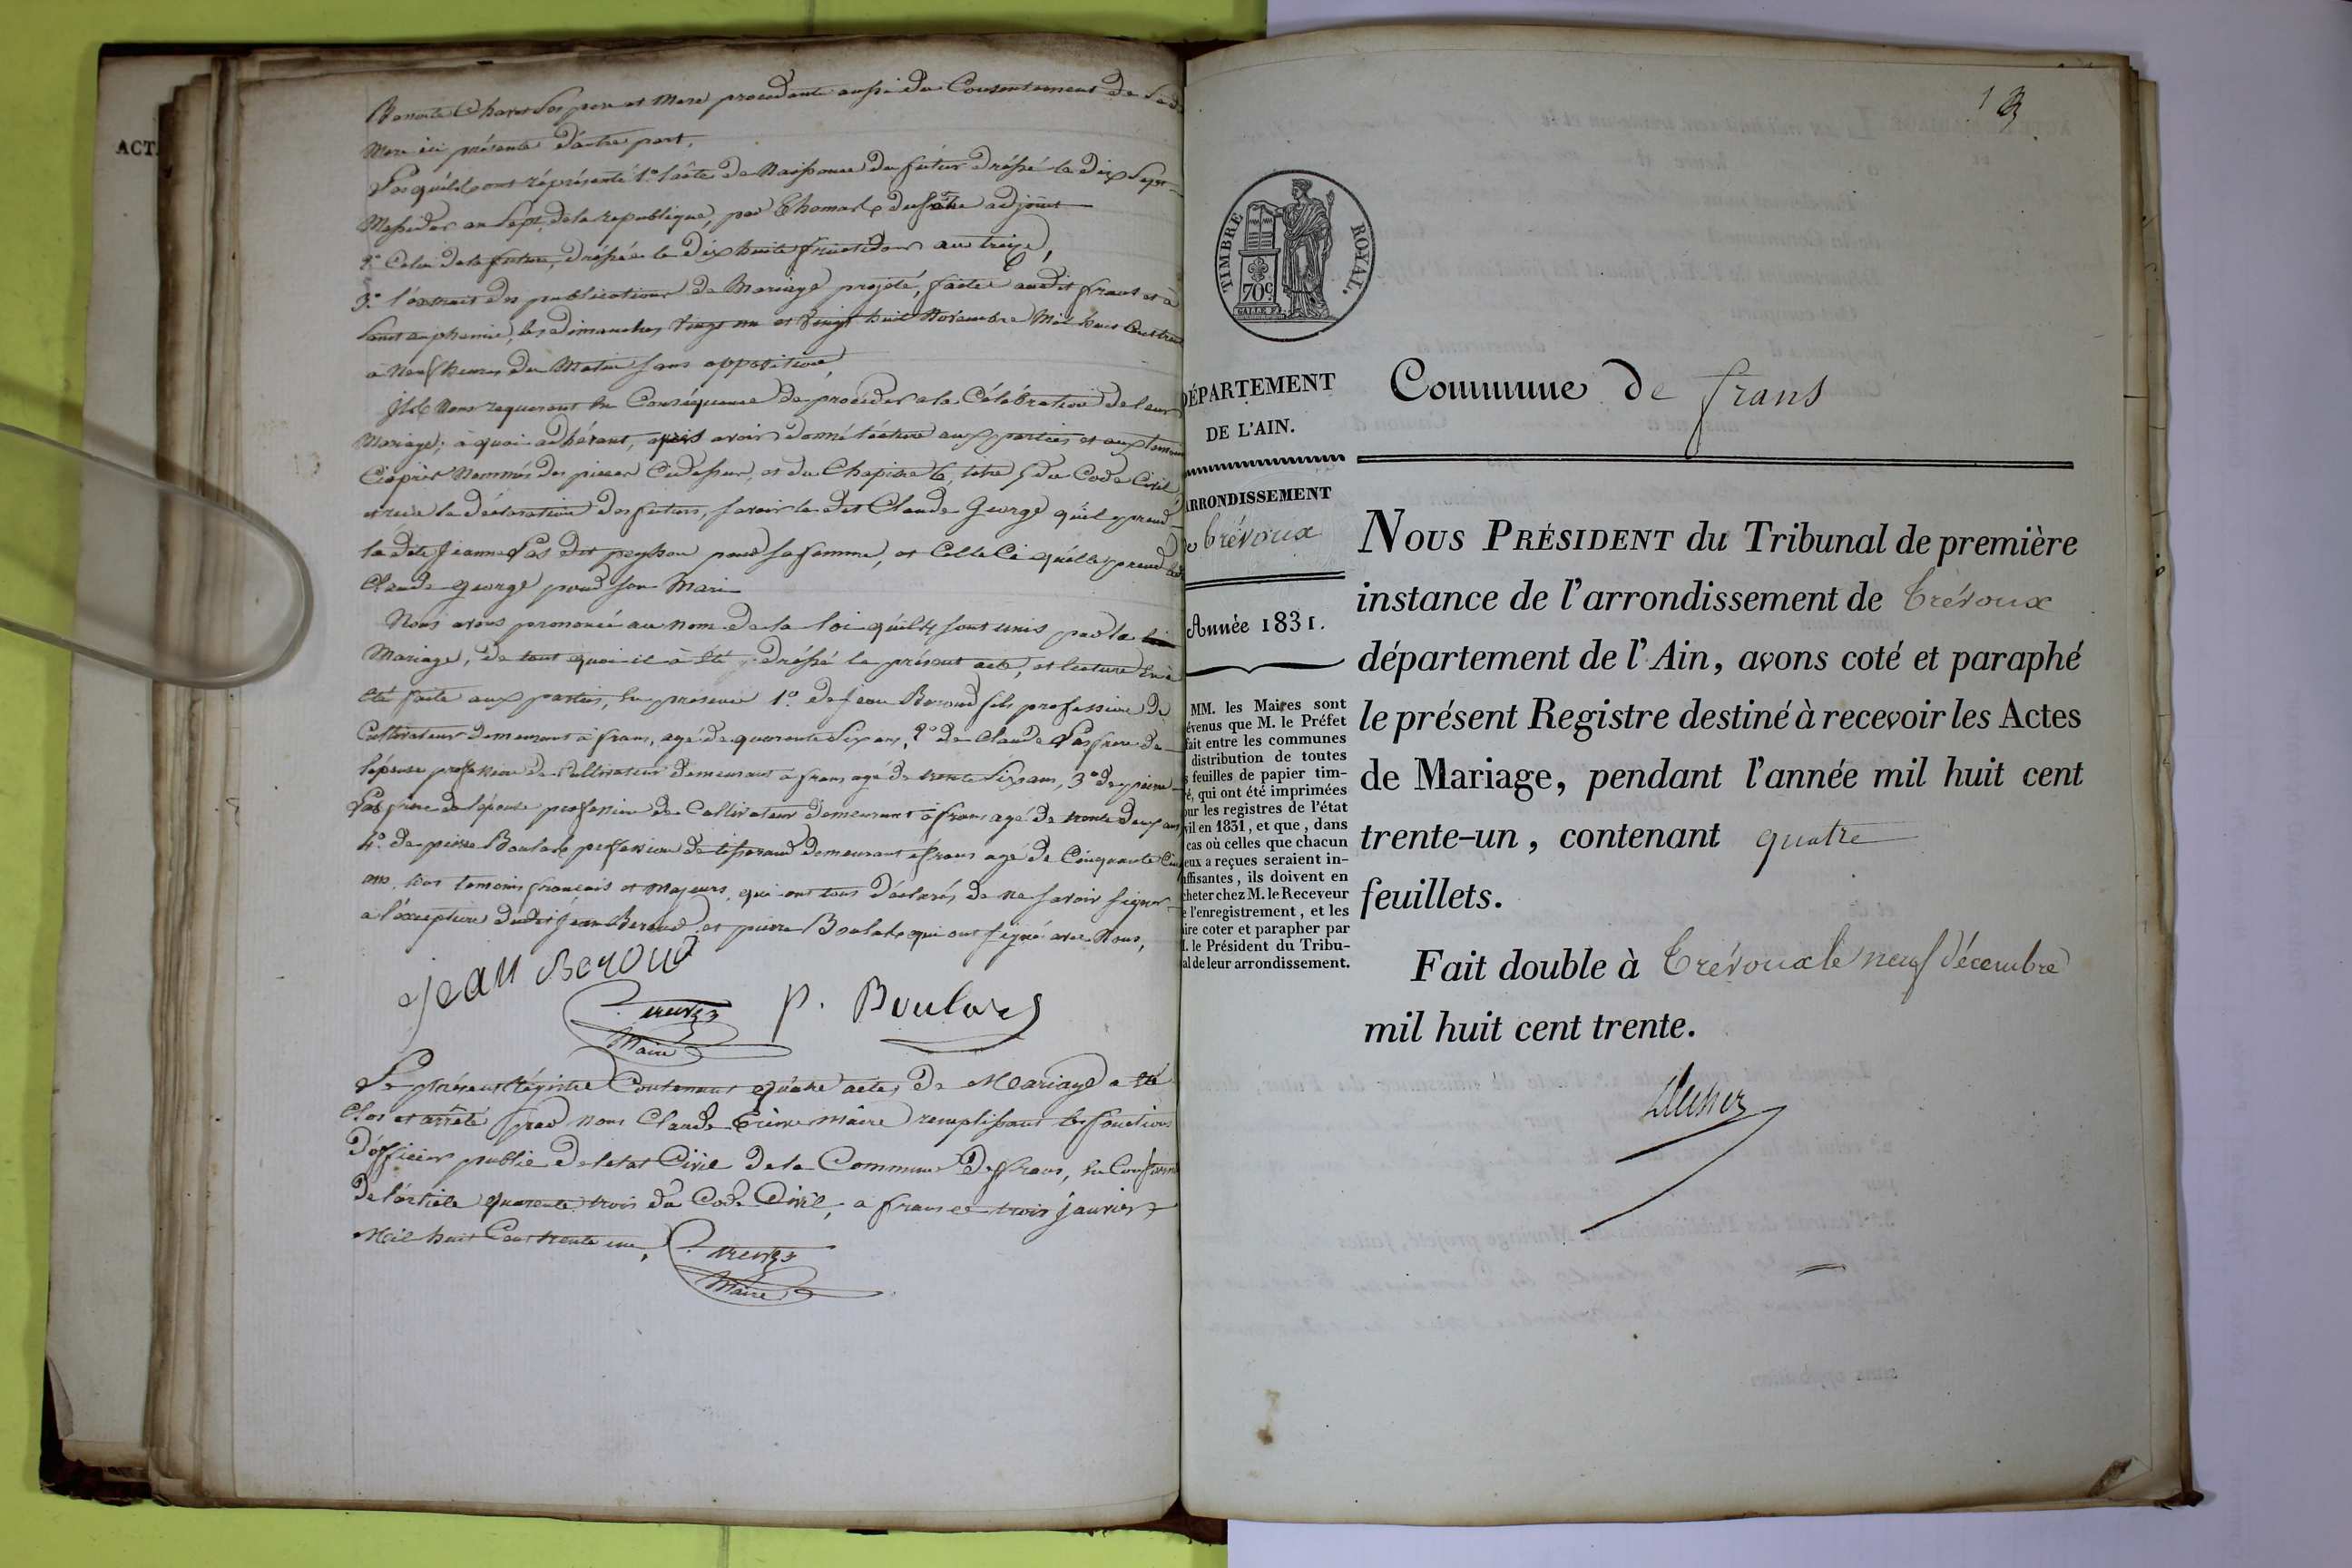 ACT
Benoite Charet Ses pere et Mere procedante aussi du Consentement de Sad
Mere ici présente d'autre part.
Lesquels ont représenté 1º l'acte de Naissance du futur dréssé le dix Sept
Messidor an Sept, de la république, par Thomas adjoint
2º Celui de la future, dréssé le Dix huit fructidor an treize,
3º l'extrait des publications de Mariage projeté, faites audit frans et à
Saint euphemie, les dimanches vingt un et vingt huit Novembre Mil huit Cent trente
à Neuf heures du Matin sans opposition,
Ils Nous requerant En Conséquence de procéder a la Célébration de leur
Mariage; à quoi adhérant, après avoir donné lécture aux parties et aux temoins
Ciaprès Nommés des pieces Cidessus, et du Chapitre 6, titre 5 du Code Civil
et recu la déclaration des futurs, savoir le dit Claude George qu'il prend
la dite Jeanne Pas dit peysson pour sa femme, et Celle Ci qu'elle prend ledit
Claude george pour son Mari
Nous avons prononcé au nom de la loi qu'ils sont unis par le
Mariage, de tout quoi il à été dréssé le présent acte, et lecture En à
été faite aux parties, En présence 1º de Jean Beroud fils profession de
Cultivateur demeurant à frans, agé de quarente Six ans, 2º de Claude Pas frere de
l'épouse profession de Cultivateur demeurant a frans agé de trente Six ans, 3º de pierre
Pas frere de l'épouse profession de Cultivateur demeurant à frans agé de trente deux ans
4º de pierre Boulard profession de tisserand demeurant à frans agé de Cinquante Cinq
ans, tous temoins français et Majeurs, qui ont tous déclarés de ne savoir signer
a l'exception dudit Jean Beroud et pierre Boulard qui ont signé avec Nous,
Jean Beroud
P. Boulard
Maire
Le présent Régistre Contenant quatre actes de Mariage a été
Clos et arrêté par nous Claude maire remplissant les fonctions
d'officier public de l'etat Civil de la Commune de frans, En Conformité
de l'article quarente trois du Code Civil, a frans le trois janvier
Mil huit Cent trente un,
Maire
1
TIMBRE ROYAL.
70 C.
GALLE F.
DÉPARTEMENT
DE L'AIN.
ARRONDISSEMENT
de trévoux
Année 1831.
MM. les Maires sont
évenus que M. le Préfet
fait entre les communes
distribution de toutes
s feuilles de papier tim-
é, qui ont été imprimées
our les registres de l'état
vil en 1831, et que, dans
cas où celles que chacun
eux a reçues seraient in-
uffisantes, ils doivent en
cheter chez M. le Receveur
e l'enregistrement, et les
ire coter et parapher par
. le Président du Tribu-
al de leur arrondissement.
Commune de frans
NOUS PRÉSIDENT du Tribunal de première
instance de l'arrondissement de trévoux
département de l'Ain, avons coté et paraphé
le présent Registre destiné à recevoir les Actes
de Mariage, pendant l'année mil huit cent
trente-un, contenant quatre
feuillets.
Fait double à trévoux le neuf décembre
mil huit cent trente.